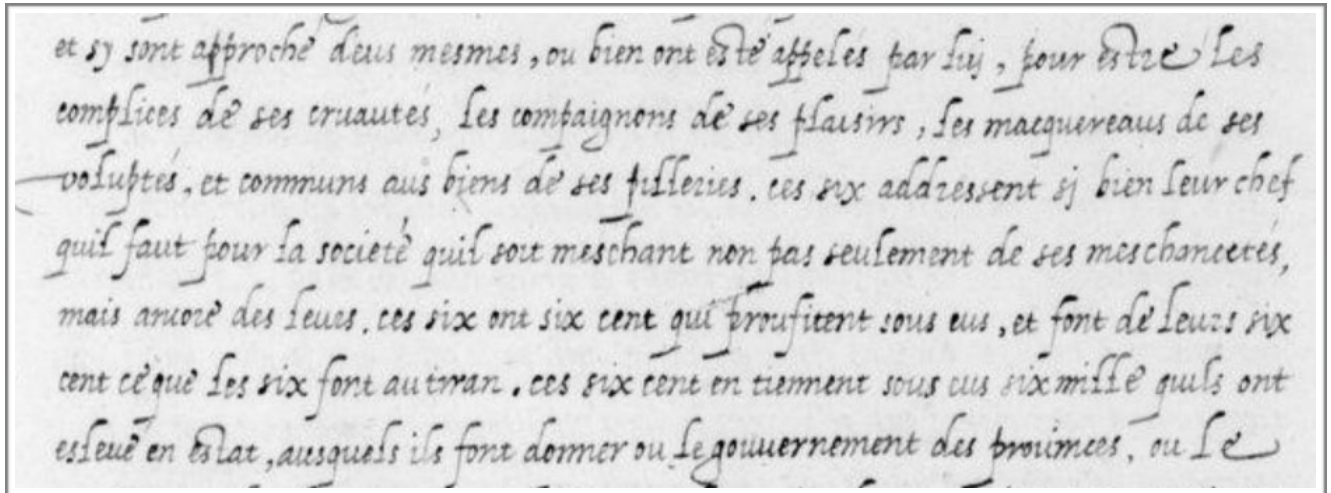 et sy sont approché deus mesmes, ou bien ont esté appelés par luy, pour estre les
complices de ses cruautés, les compaignons de ses plaisirs, les macquereaus de ses
voluptés, et communs aus biens de ses pilleries. ces six addressent sj bien leur chef
quil faut pour la societé quil soit meschant non pas seulement de ses meschancetés,
mais ancore des leues. ces six ont six cent qui proufitent sous eus, et font de leurs six
cent ce que les six font au tiran. ces six cent en tiennent sous eus six mille quils ont
eslevé en estat, ausquels ils font donner ou le gouuernement des prouinces, ou le